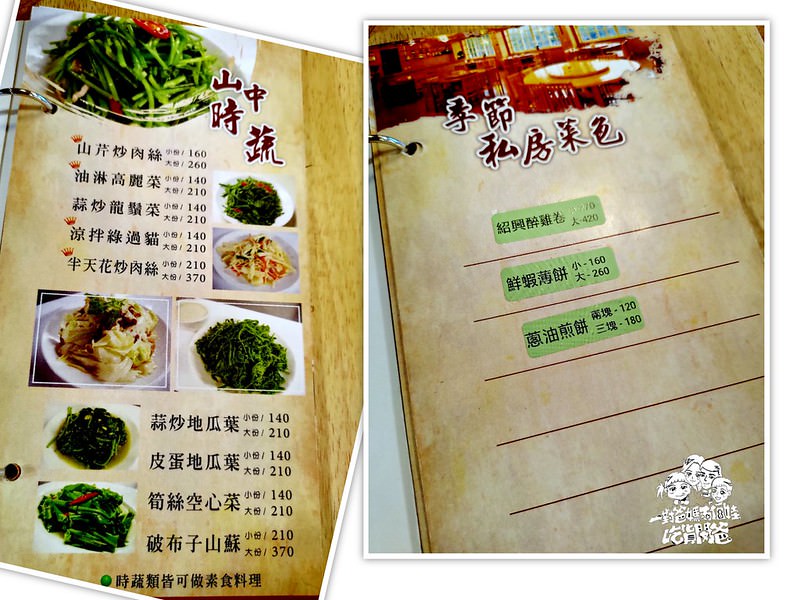 山中
時蔬
山芹炒肉絲 小份/160
大份/260
油淋高麗菜 小份/140
大份/210
蒜炒龍鬚菜 小份/140
大份/210
涼拌綠過貓 小份/140
大份/210
半天花炒肉絲 小份/210
大份/370
蒜炒地瓜葉 小份/140
大份/210
皮蛋地瓜葉 小份/140
大份/210
筍絲空心菜 小份/140
大份/210
破布子山蘇 小份/210
大份/370
時蔬類皆可做素食料理
季節
私房菜色
紹興醉雞卷
大-420
鮮蝦薄餅 小-160
大-260
蔥油煎餅 兩塊-120
三塊-180